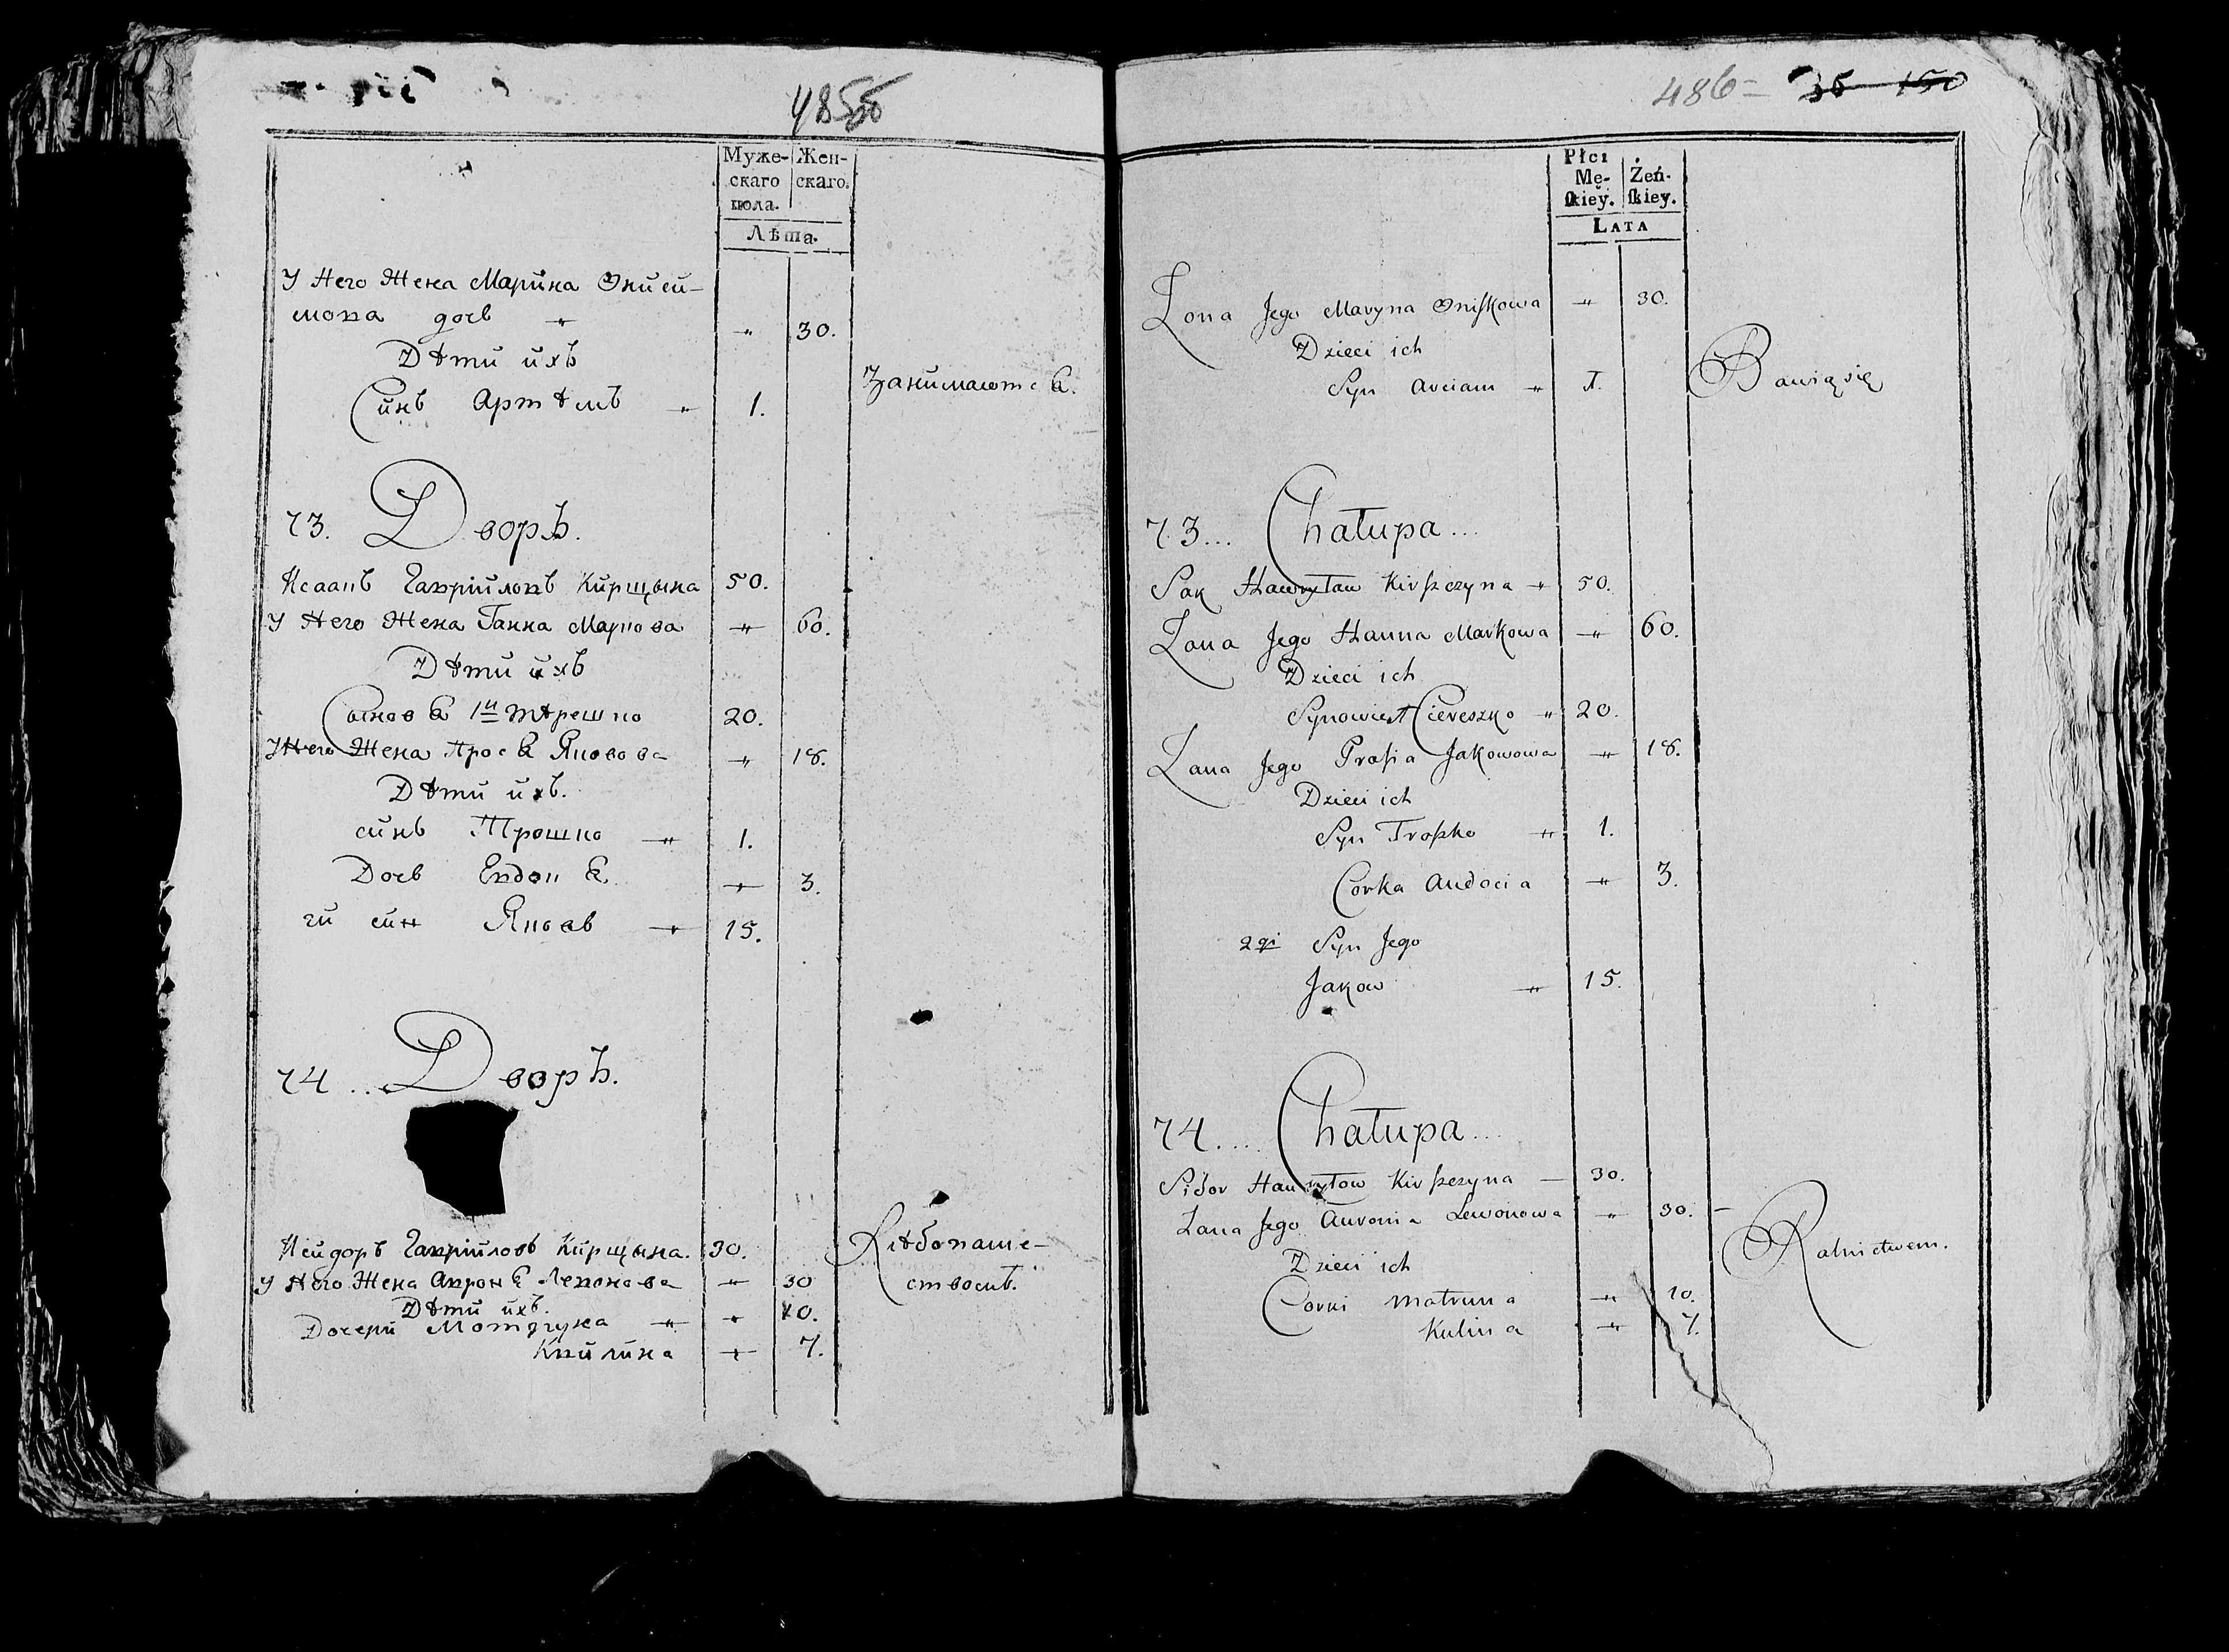 485
Муже- Жен-
скаго скаго.
пола.
Лѣта.
У Него Жена Марина Онисий-
мова доч „ „ 30.
Дѣти ихъ
Синъ Артемъ „ 1. Занимаютса.
73. Дворъ.
Исаакъ Гаврйловъ Кирщына 50.
У Него Жена Ганна Маркова „ 60.
Дѣти ихъ
Синовя 1й Терешко 20.
У Него Жена Прося Яковова „ 18.
Дѣти ихъ.
синъ Трошко „ 1.
Доч Евдоця „ 3.
ги син Яковъ „ 15.
74.. Дворъ.
Исидоръ Гаврйловъ Кирщына. 30. Хлѣбопаше-
У Него Жена Авроня Левонова „ 30 ствомъ.
Дѣти ихъ.
Дочери Мотруна „ „ 10.
Квилина „ 7.
486 = 36 150
Płci
Mę- Żeń-
ſkiey. ſkiey.
LATA
Żona Jego Maryna Oniſkowa „ 30.
Dzieci ich
Syn Arciam „ 1. Bawią się
73... Chałupa...
Sak Hawryław Kirſzczyna „ 50.
Żona Jego Hanna Markowa „ 60.
Dzieci ich
Synowie 1 Ciereszko „ 20.
Żona Jego Praſia Jakowowa „ 18.
Dzieci ich
Syn Troſzko „ 1.
Corka Audocia „ 3.
2gi Syn Jego
Jakow „ 15.
74.... Chałupa...
Sidor Hawryłow Kirſzczyna — 30.
Żona Jego Auronia Lewonowa „ 30. —
Dzieci ich Rolnictwem.
Corki Matruna „ 10.
Kulina „ 7.